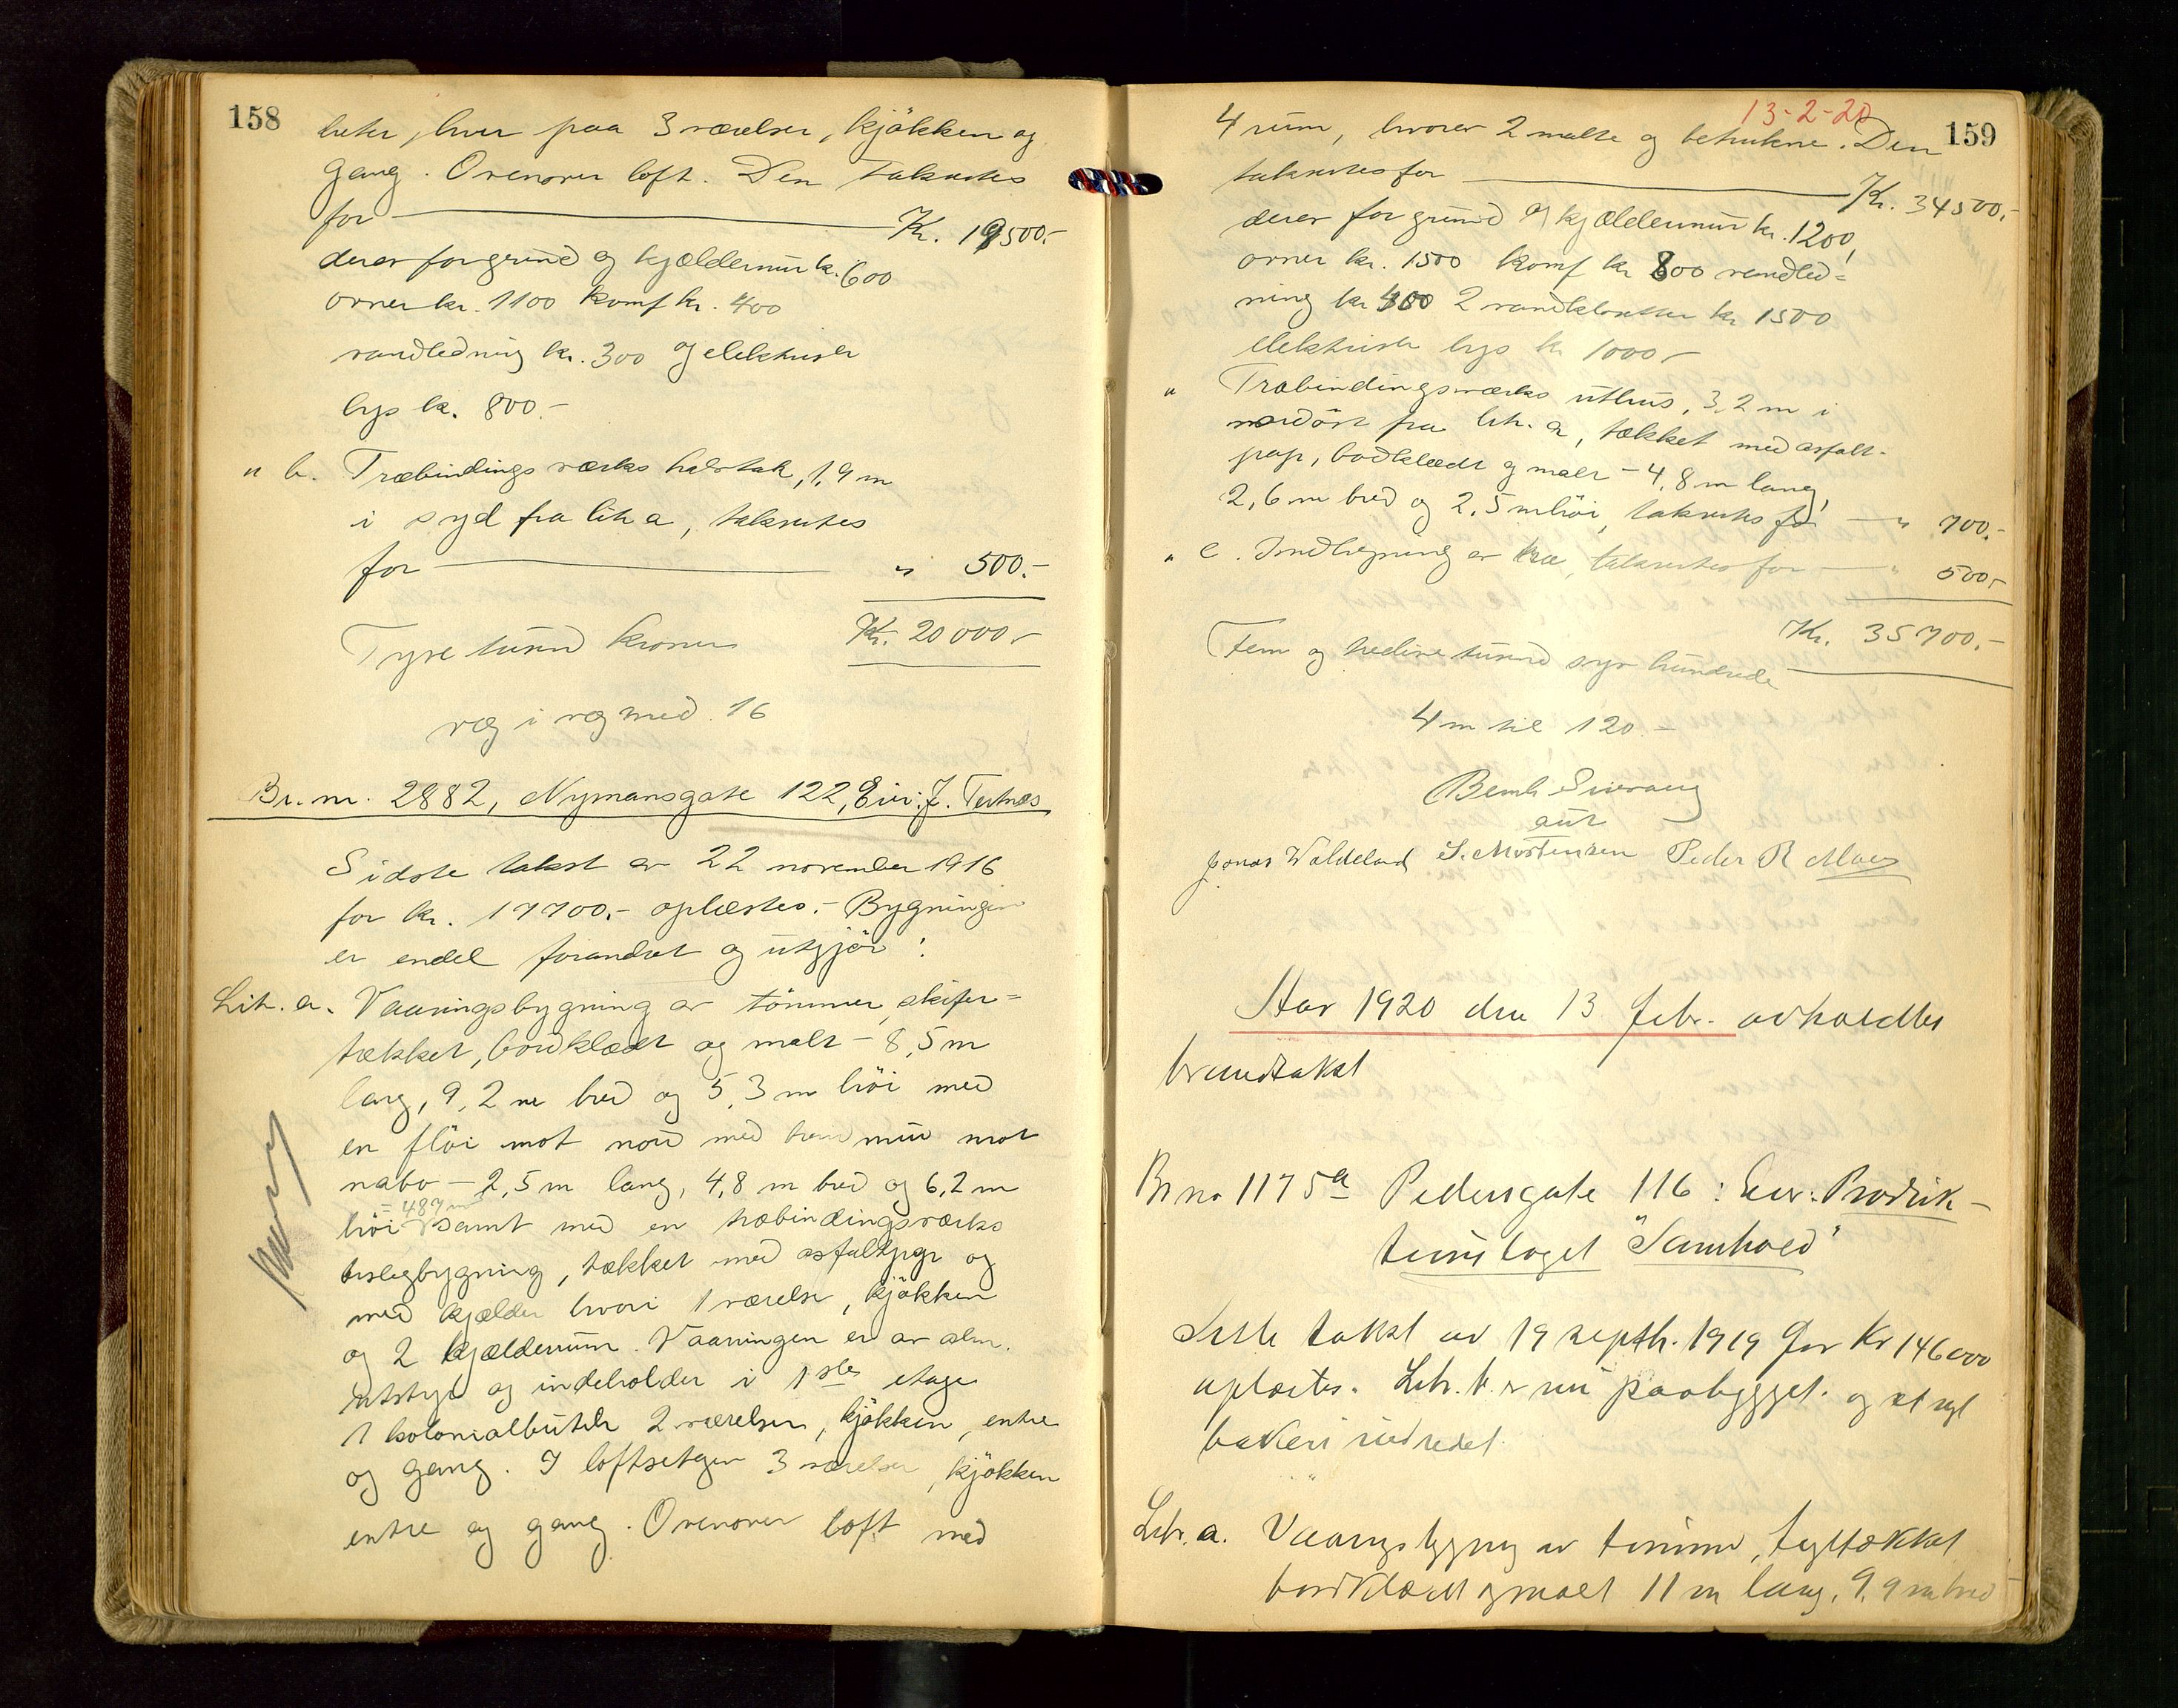 158
heter, hver paa 3 værelser, kjökken og
gang. Ovenover loft. Den takseres
for Kr. 19500.-
derav for grund og kjældermur kr. 600
ovner kr. 1100 komf kr. 400
vandledning kr. 300 og elektrisk
lys kr. 800.-
" b. Træbindingsverks halvtak, 1,9 m
i syd fra litr a, takseres
for " 500.-
Kr. 20000,-
Tyve tusind kroner
væg i væg med 16
Br.nr. 2882, Nymansgate 122, Eier: J. Tertnæs
Sidste takst av 22 november 1916
for kr. 17700.- oplæstes.- Bygningen
er endel forandret og utgjör:
Litr. a. Vaaningsbygning av tömmer, skifer=
tækket, bordklædt og malt - 8,5 m
lang, 9,2 m bred og 5,3 m höi med
en flöi mot nord med brandmur mot
nabo - 2,5 m lang, 4,8 m bred og 6,2 m
= 487 m
höi samt med en træbindingsverks
bislagbygning, tækket med asfaltpap og
med kjælder hvori 1 værelse, kjökken
og 2 kjælderrum. Vaaningen er av alm.
utstyr og indeholder i 1ste etage
1 kolonialbutik 2 værelser, kjökken, entre
og gang. I loftsetagen 3 værelser, kjökken
entre og gang. Ovenover loft med
13-2-20
159
4 rum, hvorav 2 malte og betrukne. Den
takseres for Kr. 34500,-
derav for grund og kjældermur kr. 1200,
ovner kr. 1500 komf kr 800 vandled=
ning kr 2 vandklosetter kr 1500
elektrisk lys kr 1000,-
" Træbindingsverks uthus, 3,2 m i
nordöst fra litr. a, tækket med asfalt-
pap, bordklædt og malt - 4,8 m lang,
2,6 m bred og 2,5 m höi, takseres for " 700.-
" c. Indhegning av træ, takseres for " 500,-
Kr. 35700.-
Fem og tredive tusind syv hundrede
4 m til 120.-
Bernh Sivrang
aut
Jonas Waldeland S. Mortensen Peder R Moe
Aar 1920 den 13 febr. avholdtes
brandtakst
Br no 1175a Pedersgate 116: Eier: Produk-
tionslaget "Samhold"
Siste takst av 19 septbr. 1919 for Kr 146000
oplæstes. Litr. b. er nu paabygget. og et nyt
bakeri indredet.
Litr. a. Vaaningsbygning av tömmer, tegltækket
bordklædt og malt 11 m lang, 9,9 m bred